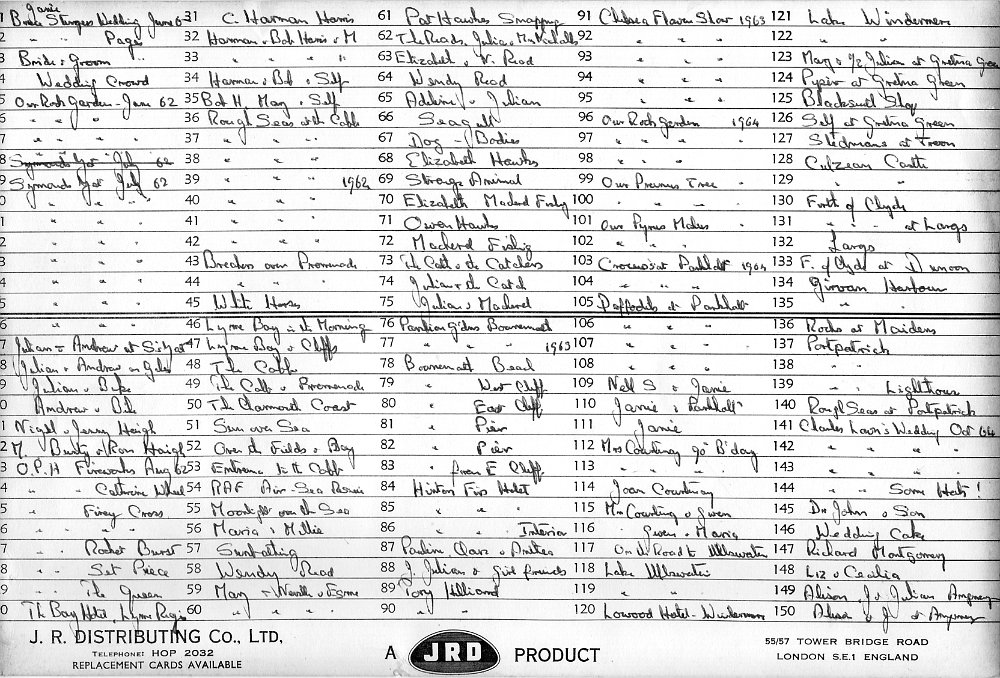 Janie
Sturgess Wedding June 63
" " Page
3 Bride & Groom "
4 Wedding Crowd
5 Our Rock Garden - June 62
6 " " "
7 " " "
8 Symonds Yat July 62
9 Symonds Yat July 62
0 " " "
1 " " "
2 " " "
3 " " "
4 " " "
5 " " "
6 " " "
7 Julian & Andrew at S. Yat
8 Julian & Andrew on
9 Julian & Bike
0 Andrew &
1 Nigel & Jerry Haigh
2 M. Betty & Ron Haigh
3 O.P.H Fireworks Aug 62
4 " " Catherine Wheel
5 " Firey Cross
6 " "
7 " " Rocket Burst
8 " Set Piece
9 " The Queen
0 The Bay Hotel, Lyme Regis
31 C. Harman Harris
32 Harman & Bob Harris & M
33 " " " "
34 Harman & Bob & Self
35 Bob H, Mary & Self
36 Rough Seas at the Cobb
37 " " "
38 " " "
39 " " " 1962
40 " " "
41 " " "
42 " " "
43 Breakers over Promenade
44 " " "
45 White Horses
46 Lyme Bay in the Morning
47 Lyme Bay & Cliffs
48 The Cobb
49 The Cobb & Promenade
50 The Charmouth Coast
51 Sun over Sea
52 Over the Fields & Bay
53 Entrance to the Cobb
54 RAF Air-Sea Rescue
55 Moonlight over the Sea
56 Maria & Millie
57 Sunbathing
58 Wendy Read
59 Mary & Neville & Esme
60 " " "
61 Pat Hawkes Snapping
62 The Reads, Julia & Mrs Nicholls
63 Elizabeth & N. Read
64 Wendy Read
65 Adeline & Julian
66 Seagull
67 Dog - Bodies
68 Elizabeth Hawkes
69 Strange Animal
70 Elizabeth Mackerel Fishing
71 Owen Hawkes
72 Mackerel Fishing
73 The Catch & the Catchers
74 Julian & the Catch
75 Julian & Mackerel
76 Pavilion Gdns Bournemouth
77 " " " 1963
78 Bournemouth Beach
79 " West Cliff
80 " East Cliff
81 " Pier
82 " Pier
83 " from E Cliff
84 Hinton Firs Hotel
85 " " "
86 " " Interior
87 Pauline, Clare & Anthea
88 J. Julian & girl friends
89 Tony Hilliard
90 " "
91 Chelsea Flower Show 1963
92 " " "
93 " " "
94 " " "
95 " " "
96 Our Rock Garden 1964
97 " " "
98 " " "
99 Our Prunus Tree
100 " " "
101 Our Pyrus Malus
102 " " "
103 Crocuses at Parkholt 1964
104 " " "
105 Daffodils at Parkholt
106 " " "
107 " " "
108 " " "
109 Nell S & Janie
110 Janie & Parkholt
111 Janie
112 Mrs Courtenay 90 B'day
113 " " "
114 Joan Courtenay
115 Mrs Courtenay & Gwen
116 " Gwen & Maria
117 On the Road to Ullswater
118 Lake Ullswater
119 " "
120 Lowood Hotel - Windermere
121 Lake Windermere
122 " "
123 Mary & Julian at Gretna Green
124 Piper at Gretna Green
125 Blacksmith Shop
126 Self at Gretna Green
127 Stedmans at Troon
128 Culzean Castle
129 " "
130 Firth of Clyde
131 " " " at Largs
132 Largs
133 F. of Clyde at Dunoon
134 Girvan Harbour
135 " "
136 Rocks at Maidens
137 Portpatrick
138 "
139 " Lighthouse
140 Rough Seas at Portpatrick
141 Charles Lawn's Wedding Oct 64
142 " " "
143 " " "
144 " " Some Hats!
145 Dr John & Son
146 Wedding Cake
147 Richard Montgomery
148 Liz & Cecilia
149 Alison, J & Julian Ampney
150 Alison & J at Ampney
J. R. DISTRIBUTING Co., LTD,
TELEPHONE: HOP 2032
REPLACEMENT CARDS AVAILABLE
A JRD PRODUCT
55/57 TOWER BRIDGE ROAD
LONDON S.E.1 ENGLAND